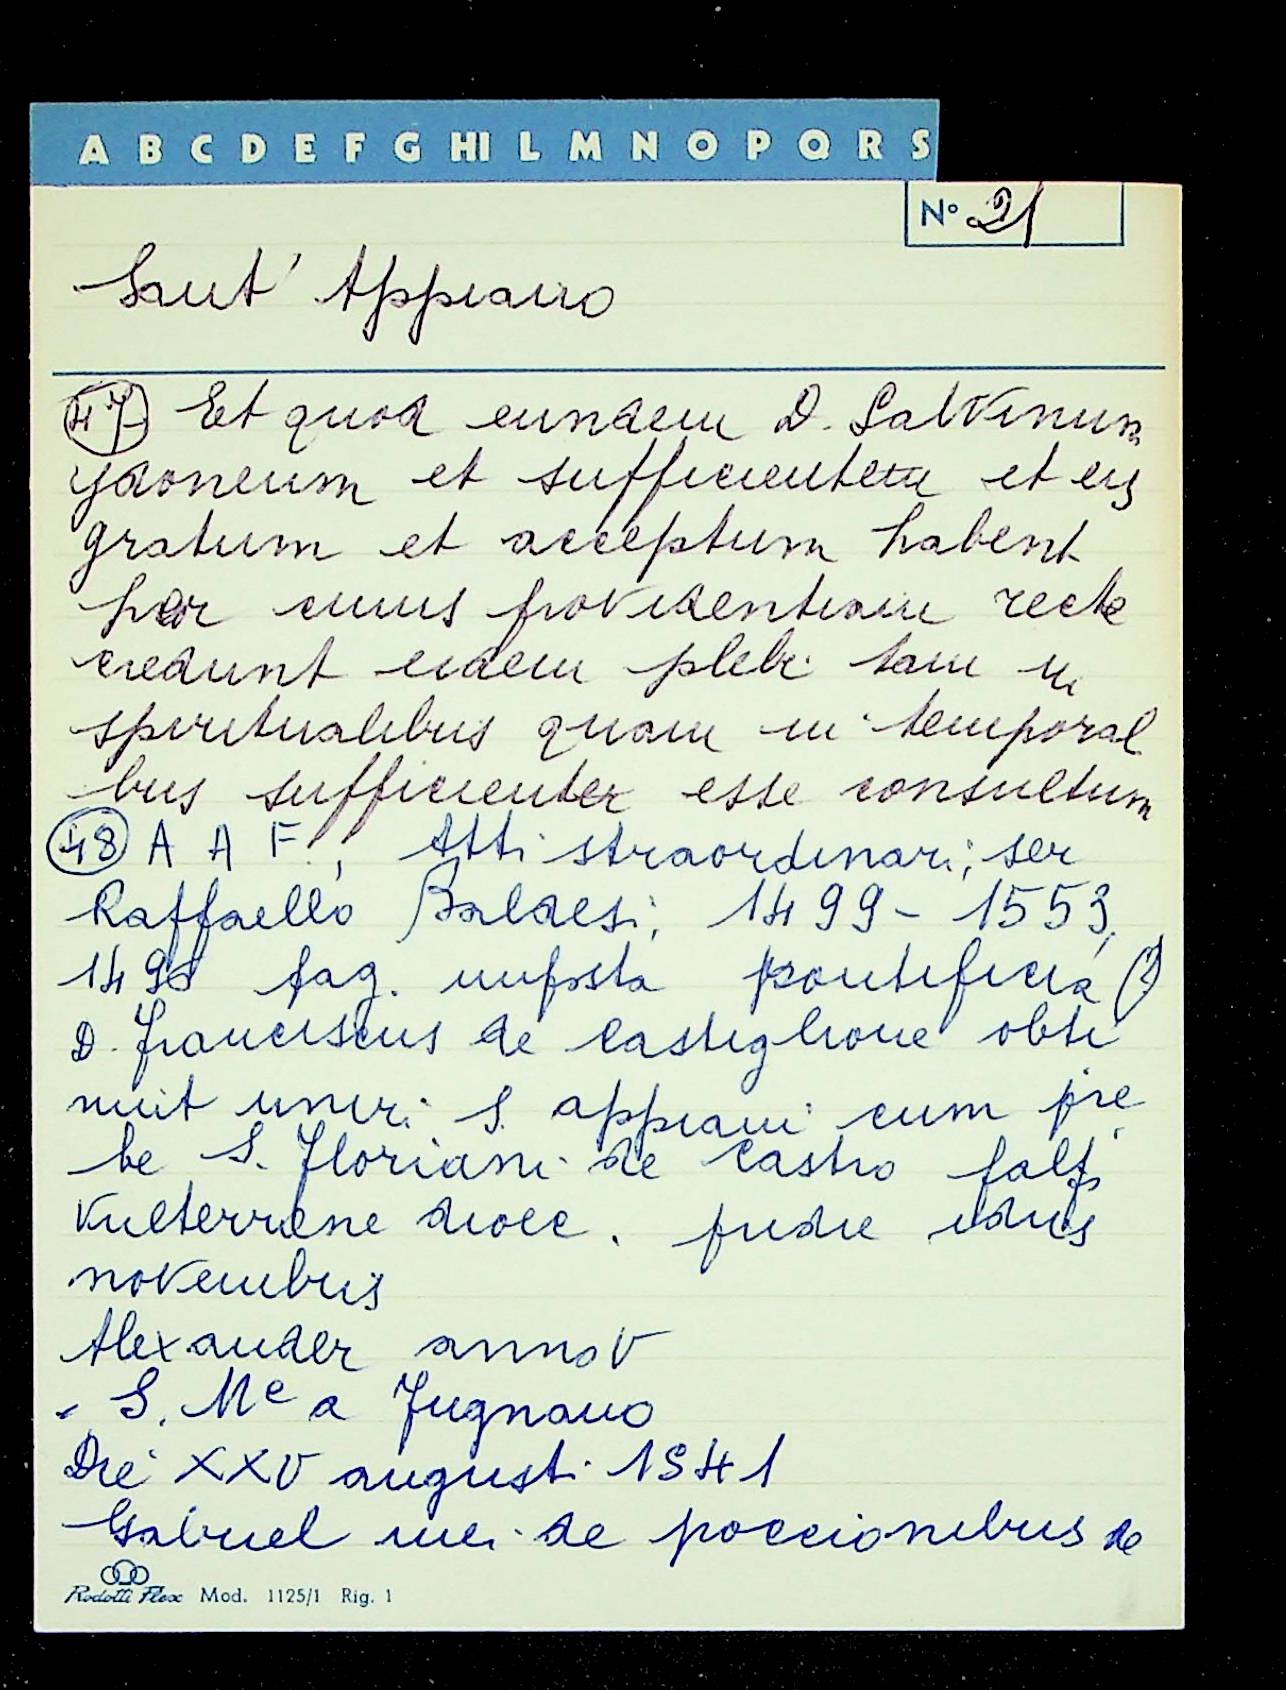 A B C D E F G HI L M N O P Q R S
N° 21
Sant' Appiano
47 Et quod eundem D. Salvinum
ydoneum et sufficientem et eis
gratum et acceptum habent
per cuius providentiam recte
credunt eidem plebi tam in
spiritualibus quam in temporal
bus sufficienter esse consultum
48 A A F., Atti straordinari; ser
Raffaello Baldesi; 1499 - 1553,
149 pag. imposta pontificia (?)
D. Franciscus de Castiglione obti
nuit uniri S. appiani cum ple
be S. Floriani de Castro falf.
Vulterrene dioec. pridie idus
novembris
Alexander anno V
S. Me a Jugnano
Die XXV augusti 1541
Gabriel mei de poccionibus de
Rodotti Flex Mod. 1125/1 Rig. 1